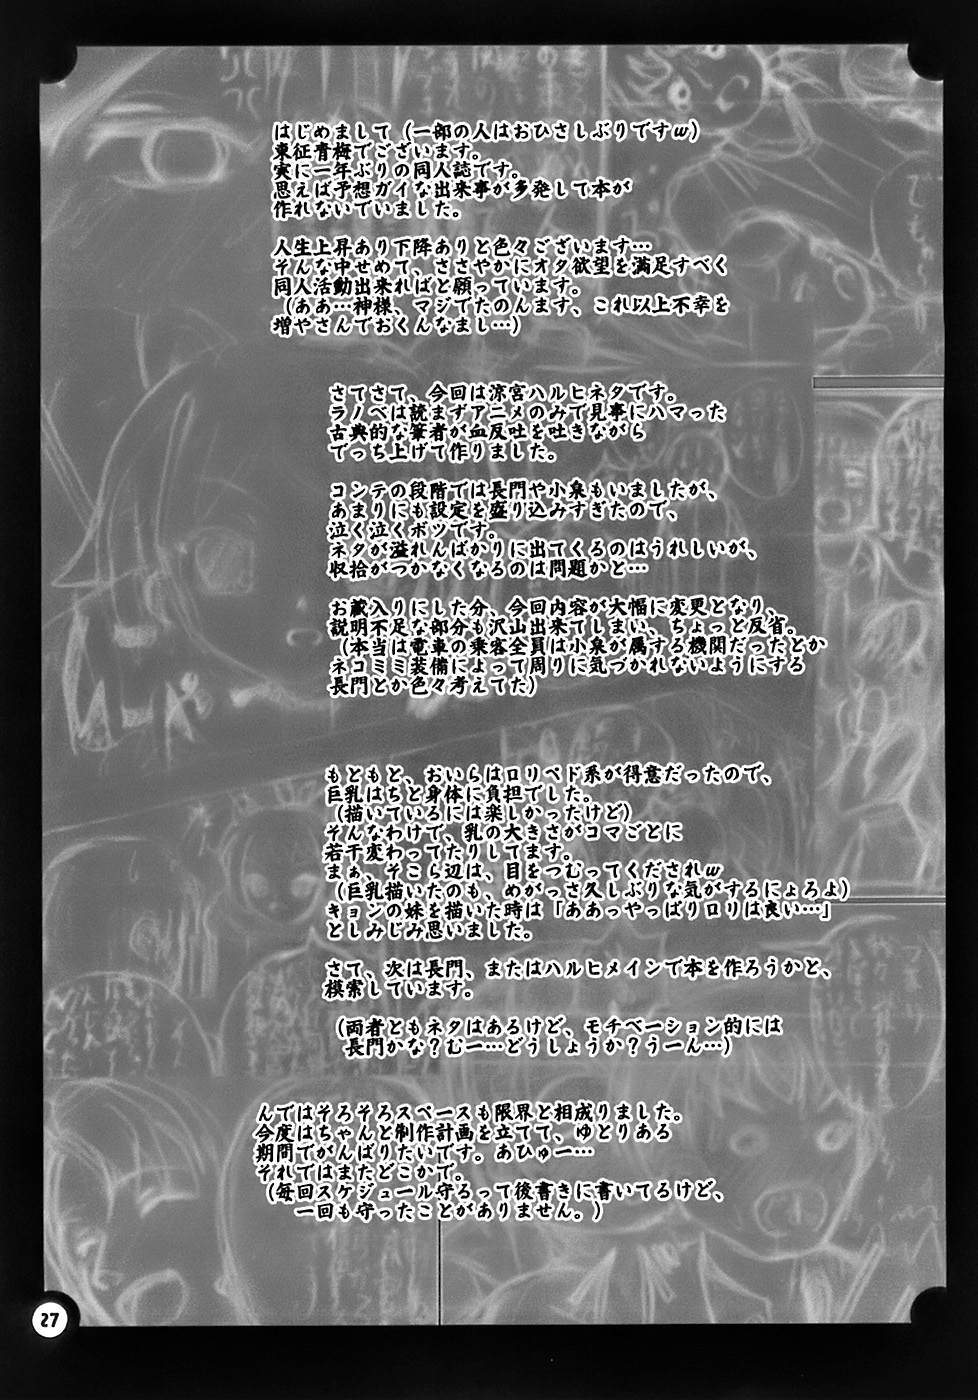 はじめまして（一部の人はおひさしぶりですw）
東征青梅でございます。
実に一年ぶりの同人誌です。
思えば予想ガイな出来事が多発して本が
作れないでいました。
人生上昇あり下降ありと色々ございます…
そんな中せめて、ささやかにオタ欲望を満足すべく
同人活動出来ればと願っています。
（ああ…神様、マジでたのんます、これ以上不幸を
増やさんでおくんなまし…）
さてさて、今回は涼宮ハルヒネタです。
ラノベは読まずアニメのみで見事にハマった
古典的な筆者が血反吐を吐きながら
でっち上げて作りました。
コンテの段階では長門や小泉もいましたが、
あまりにも設定を盛り込みすぎたので、
泣く泣くボツです。
ネタが溢れんばかりに出てくるのはうれしいが、
収拾がつかなくなるのは問題かと…
お蔵入りにした分、今回内容が大幅に変更となり、
説明不足な部分も沢山出来てしまい、ちょっと反省。
（本当は電車の乗客全員は小泉が属する機関だったとか
ネコミミ装備によって周りに気づかれないようにする
長門とか色々考えてた）
もともと、おいらはロリペド系が得意だったので、
巨乳はちと身体に負担でした。
（描いているには楽しかったけど）
そんなわけで、乳の大きさがコマごとに
若干変わってたりしてます。
まぁ、そこら辺は、目をつむってくだされw
（巨乳描いたのも、めがっさ久しぶりな気がするにょろよ）
キョンの妹を描いた時は「ああっやっぱりロリは良い…」
としみじみ思いました。
さて、次は長門、またはハルヒメインで本を作ろうかと、
模索しています。
（両者ともネタはあるけど、モチベーション的には
長門かな？むー…どうしょうか？うーん…）
んではそろそろスペースも限界と相成りました。
今度はちゃんと制作計画を立てて、ゆとりある
期間でがんばりたいです。あひゅー…
それではまたどこかで。
（毎回スケジュール守るって後書きに書いてるけど、
一回も守ったことがありません。）
27